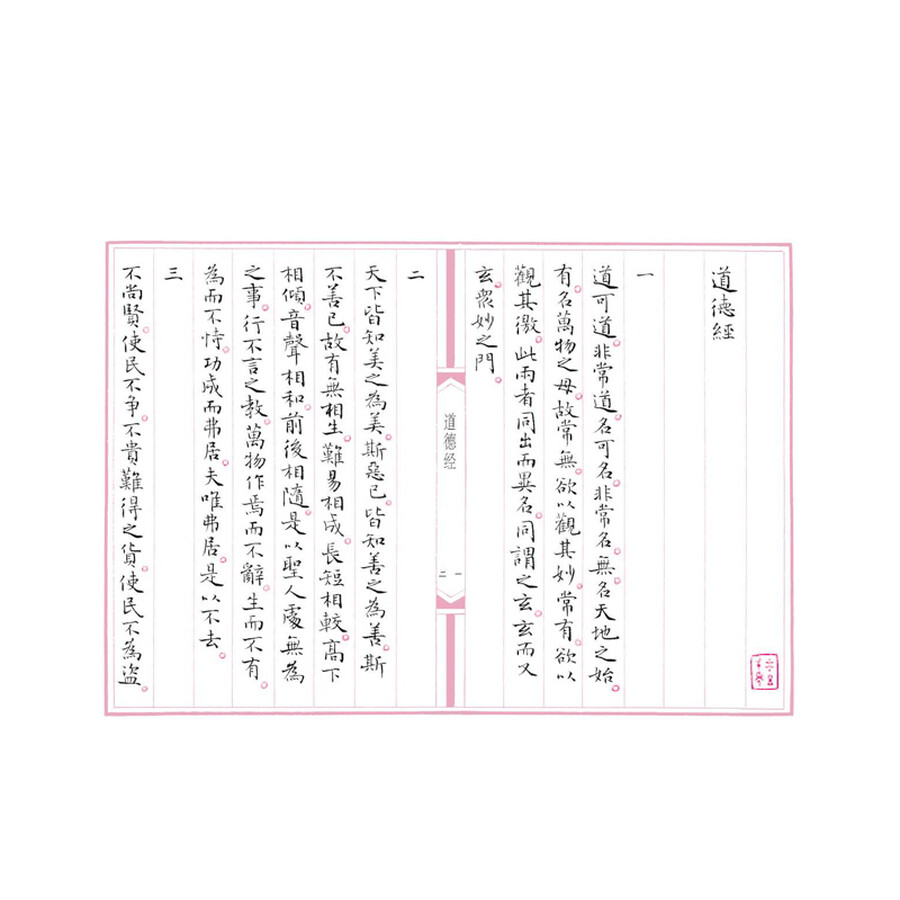 道德經
一
道可道。非常道。名可名。非常名。無名天地之始。
有。名萬物之母。故常無。欲以觀其妙。常有。欲以
觀其徼。此兩者同出而異名。同謂之玄。玄而又
玄。眾妙之門。
道德经
一
二
二
天下皆知美之為美。斯惡已。皆知善之為善。斯
不善已。故有無相生。難易相成。長短相較。高下
相傾。音聲相和。前後相隨。是以聖人處無為
之事。行不言之教。萬物作焉而不辭。生而不有。
為而不恃。功成而弗居。夫唯弗居。是以不去。
三
不尚賢。使民不爭。不貴難得之貨。使民不為盜。